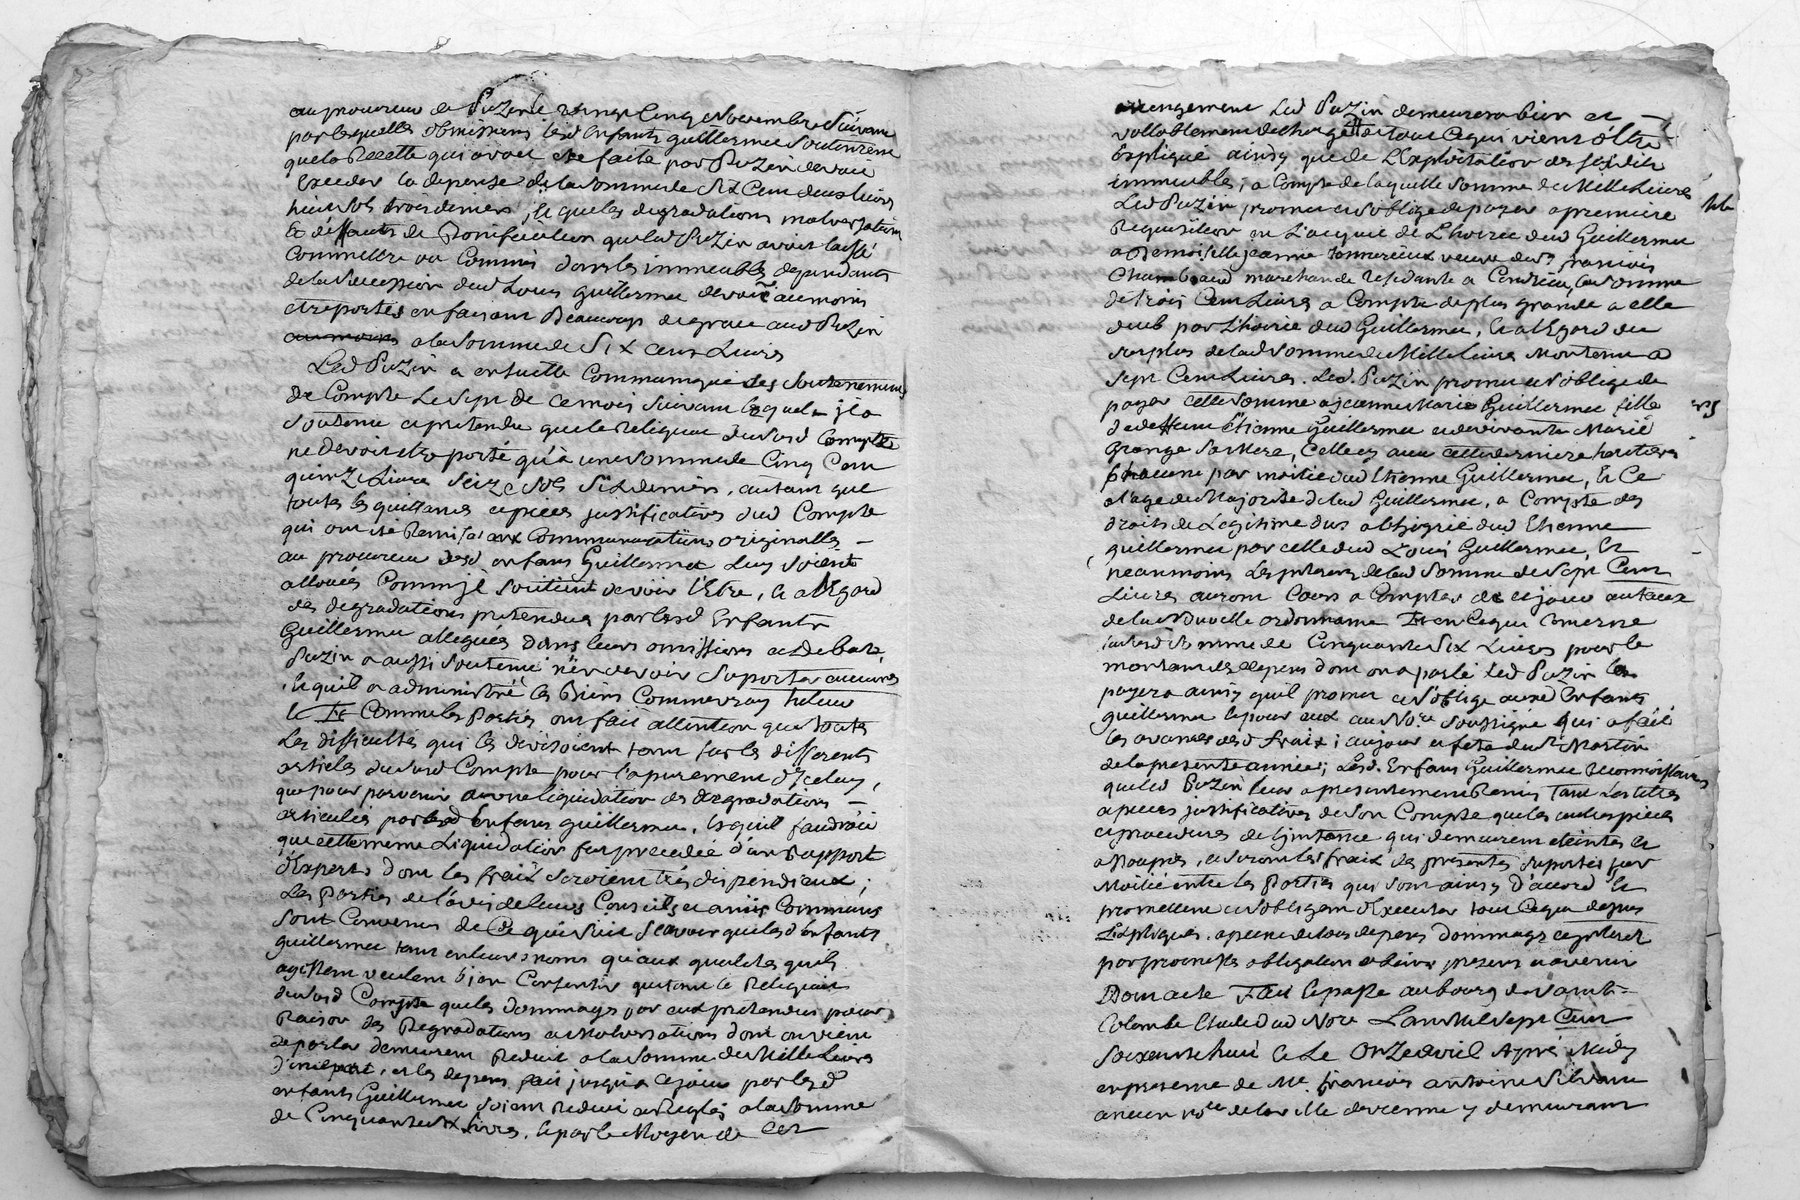 au procureur de Puzin le vingt Cinq Novembre Suivant
par lesquelles obmissions lesd Enfants guillermet Soutenrent
que la Recette qui avoit ete faite par Puzin devoit
Exceder la depense de la somme de Six Cent deux livres
huit sols trois deniers, & que les degradations malversations
Et deffauts de Bonification que led Puzin avoit laissé
Commettre ou Commis dans les immeubles dependants
de la Succession dud Louis guillermet devoit au moins
etre portés en faisant Beaucoup de grace aud Puzin
a la somme de Six cent Livres
Led Puzin a ensuitte Communiqué des Soutenements
de Compte Le sept de ce mois suivant lequel il a
Soutenu et pretendu que le Reliquat dususd Compte
ne devoit etre porté qu'à une somme de Cinq Cent
quinze Livres Seize sols Six deniers, autant que
toutes les quittances et pieces justificatives dud Compte
qui ont été Remises aux Communications originalles
au procureur desd enfans Guillermet luy soient
allouées Comm'jl soutient devoir l'Etre, & a l'Egard
des degradations pretendues par lesd Enfants
Guillermet alleguées dans leurs omissions et Debats,
Puzin a aussi soutenu n'en devoir suporter aucunes
& qu'il a administré les Biens Comme vray tuteur
& Et Comme les Parties ont fait attention que toutes
Les difficultés qui les divisoient tant sur les differents
articles dususd Compte pour l'apurement d'Jceluy,
que pour parvenir a une liquidation des degradations
articulées par lesd Enfans guillermet, & qu'il faudroit
que cette meme Liquidation fut precedée d'un Rapport
d'Experts dont les fraix seroient trés dispendieux ;
Les Parties de l'avis de leurs Conseils et amis Communs
sont Convenus de Ce qui suit scavoir que lesd Enfants
guillermet tant en leurs noms qu'aux qualités qu'ils
agissent veulent bien Consentir que tant le Reliquat
dususd Compte que les dommages par eux pretendus pour
Raison des Degradations et Malversations dont on vient
de parler demeurent Reduit a la somme de Mille Livres
d'une part, et les depens fait jusqu'a ce jour par lesd
enfants Guillermet soient Reduit et Reglés a la somme
de Cinquante Six Livres, & par le Moyen de Cet
arrengement Led Puzin demeurera bien et
vallablement dechargé de tout Ce qui vient d'Etre
Expliqué ainsy que de l'Exploitation des susdits
immeubles ; a Compte de laquelle somme de Mille Livres
Led Puzin promet et s'oblige de payer a premiere
Requisition en l'acquit de L'hoirie dud Guillermet
a Demoiselle jeanne veuve de Sr françois
marchande Residante a Condrieu, la somme
de trois Cent Livres a Compte de plus grande a elle
dueb par L'hoirie dud Guillermet, & a l'Egard du
surplus de lad somme de Mille Livres Montant a
sept Cent Livres, Led. Puzin promet et s'oblige de
payer cette somme a jeanne Marie Guillermet fille
de deffunt Etienne Guillermet et de vivante Marie
Grange sa Mere, Celles cy avec cette derniere heritiere
Chacune par moitié dud Etienne Guillermet, & Ce
a l'age de Majorité de lad Guillermet, a Compte des
droits de Legitime dus a l'hoirie dud Etienne
guillermet par celle dud Louis Guillermet, &
neanmoins Les interets de lad somme de sept Cent
Livres auront Cours a Compter de ce jour au taux
de la Nouvelle ordonnance Et en Ce qui Concerne
lad somme de Cinquante Six Livres pour le
montant des depens dont on a parlé Led Puzin la
payera ainsy qu'il promet et s'oblige auxd Enfants
guillermet & pour eux au Nore soussigné qui a fait
les avances desd fraix ; au jour et fete de St Martin
de la presente année ; Lesd. Enfans Guillermet Reconnoissants
que led Puzin leur a presentement Remis Tant Les titres
et pieces justificatives de son Compte que les autres pieces
et procedures de l'jnstance qui demeurent eteintes &
assoupies, et seront les fraix des presentes suportés par
Moitié entre les Parties qui sont ainsy D'accord &
promettent et s'obligent d'Executer tout Ce que dessus
Expliqué, a peine de tous depens dommages et jnterets
par promesses obligation de biens presents et avenir
Dont acte Fait & passé au bourg de Saint=
Colombe Etude dud Nore L'an Mil sept Cent
soixante huit & Le Onze avril Aprés Midy
en presence de Me. françois antoine Silvain
ancien nore de la ville de vienne y demeurant